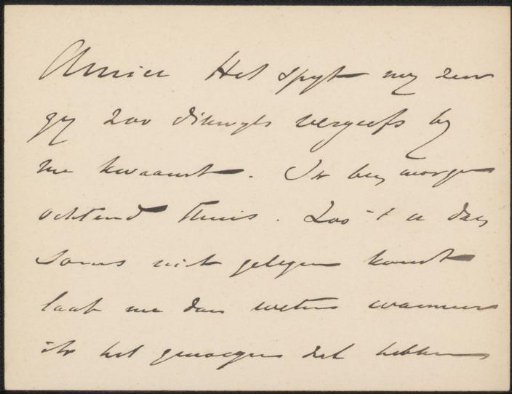 Amice Het spijt my zeer
gy zoo dikwyls vergeefs by
me kwaamt. Ik ben morgen
ochtend thuis. Zoo 't u dan
soms niet gelegen komt
laat me dan weten wanneer
ik het genoegen zal hebben